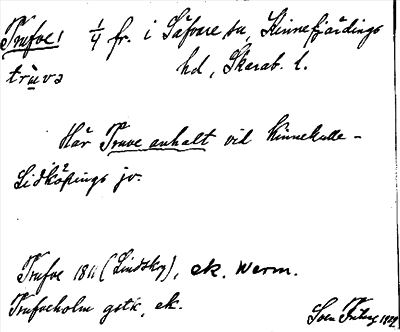 Trufve! 1/4 fr. i Säfvare sn, Kinnefjärdings
trùvə hd, Skarab. l.
Här Truve anhalt vid Kinnekulle-
Lidköpings jv.
Trufve 1811 (Lindsky), ek. Werm.
Trufveholm gstk, ek.
Sven Friberg